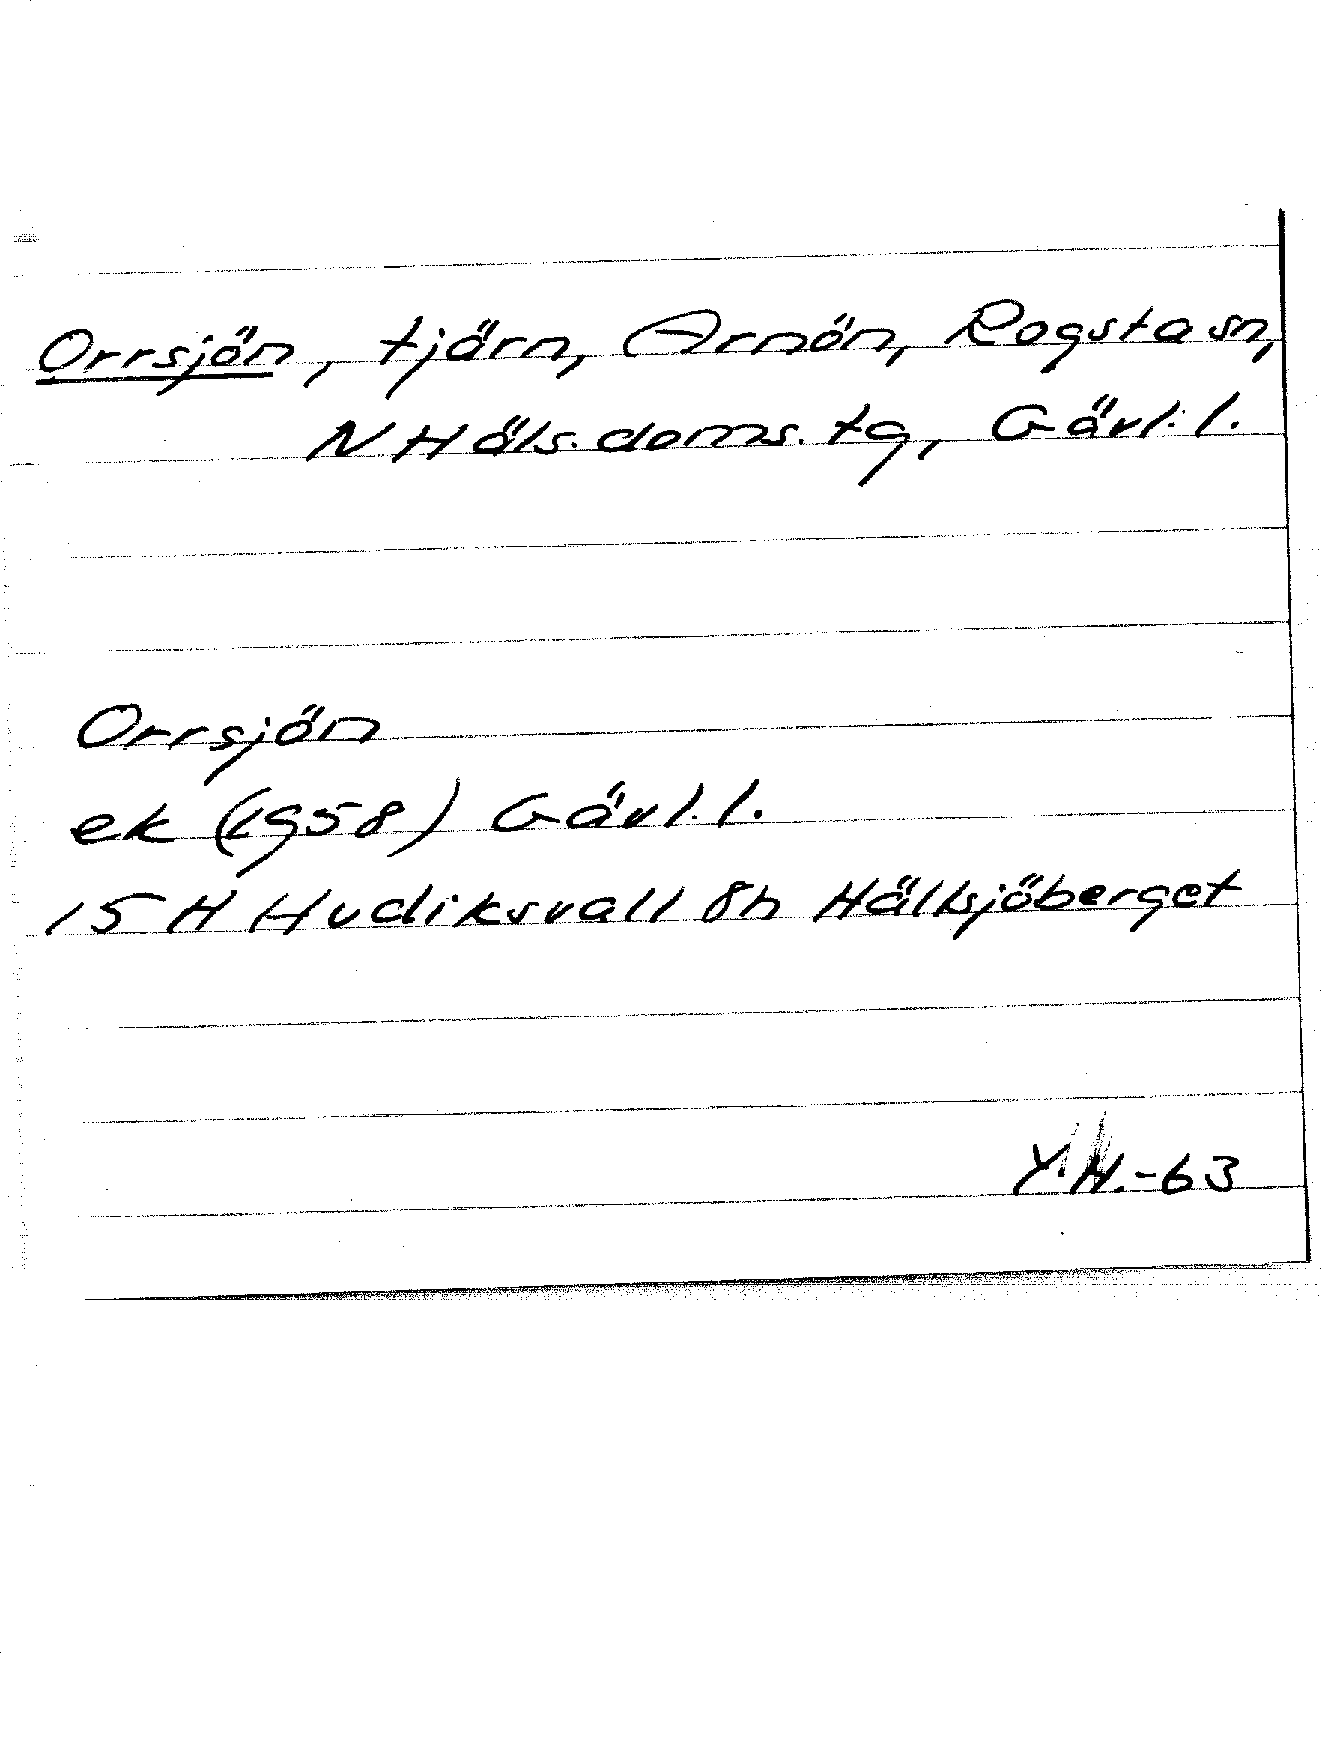 Orrsjön, tjärn, Arnön, Rogsta sn,
N Häls. doms. tg, Gävl. l.
Orrsjön
ek (1958) Gävl. l.
15 H Hudiksvall 8h Hällsjöberget
Y.H.-63